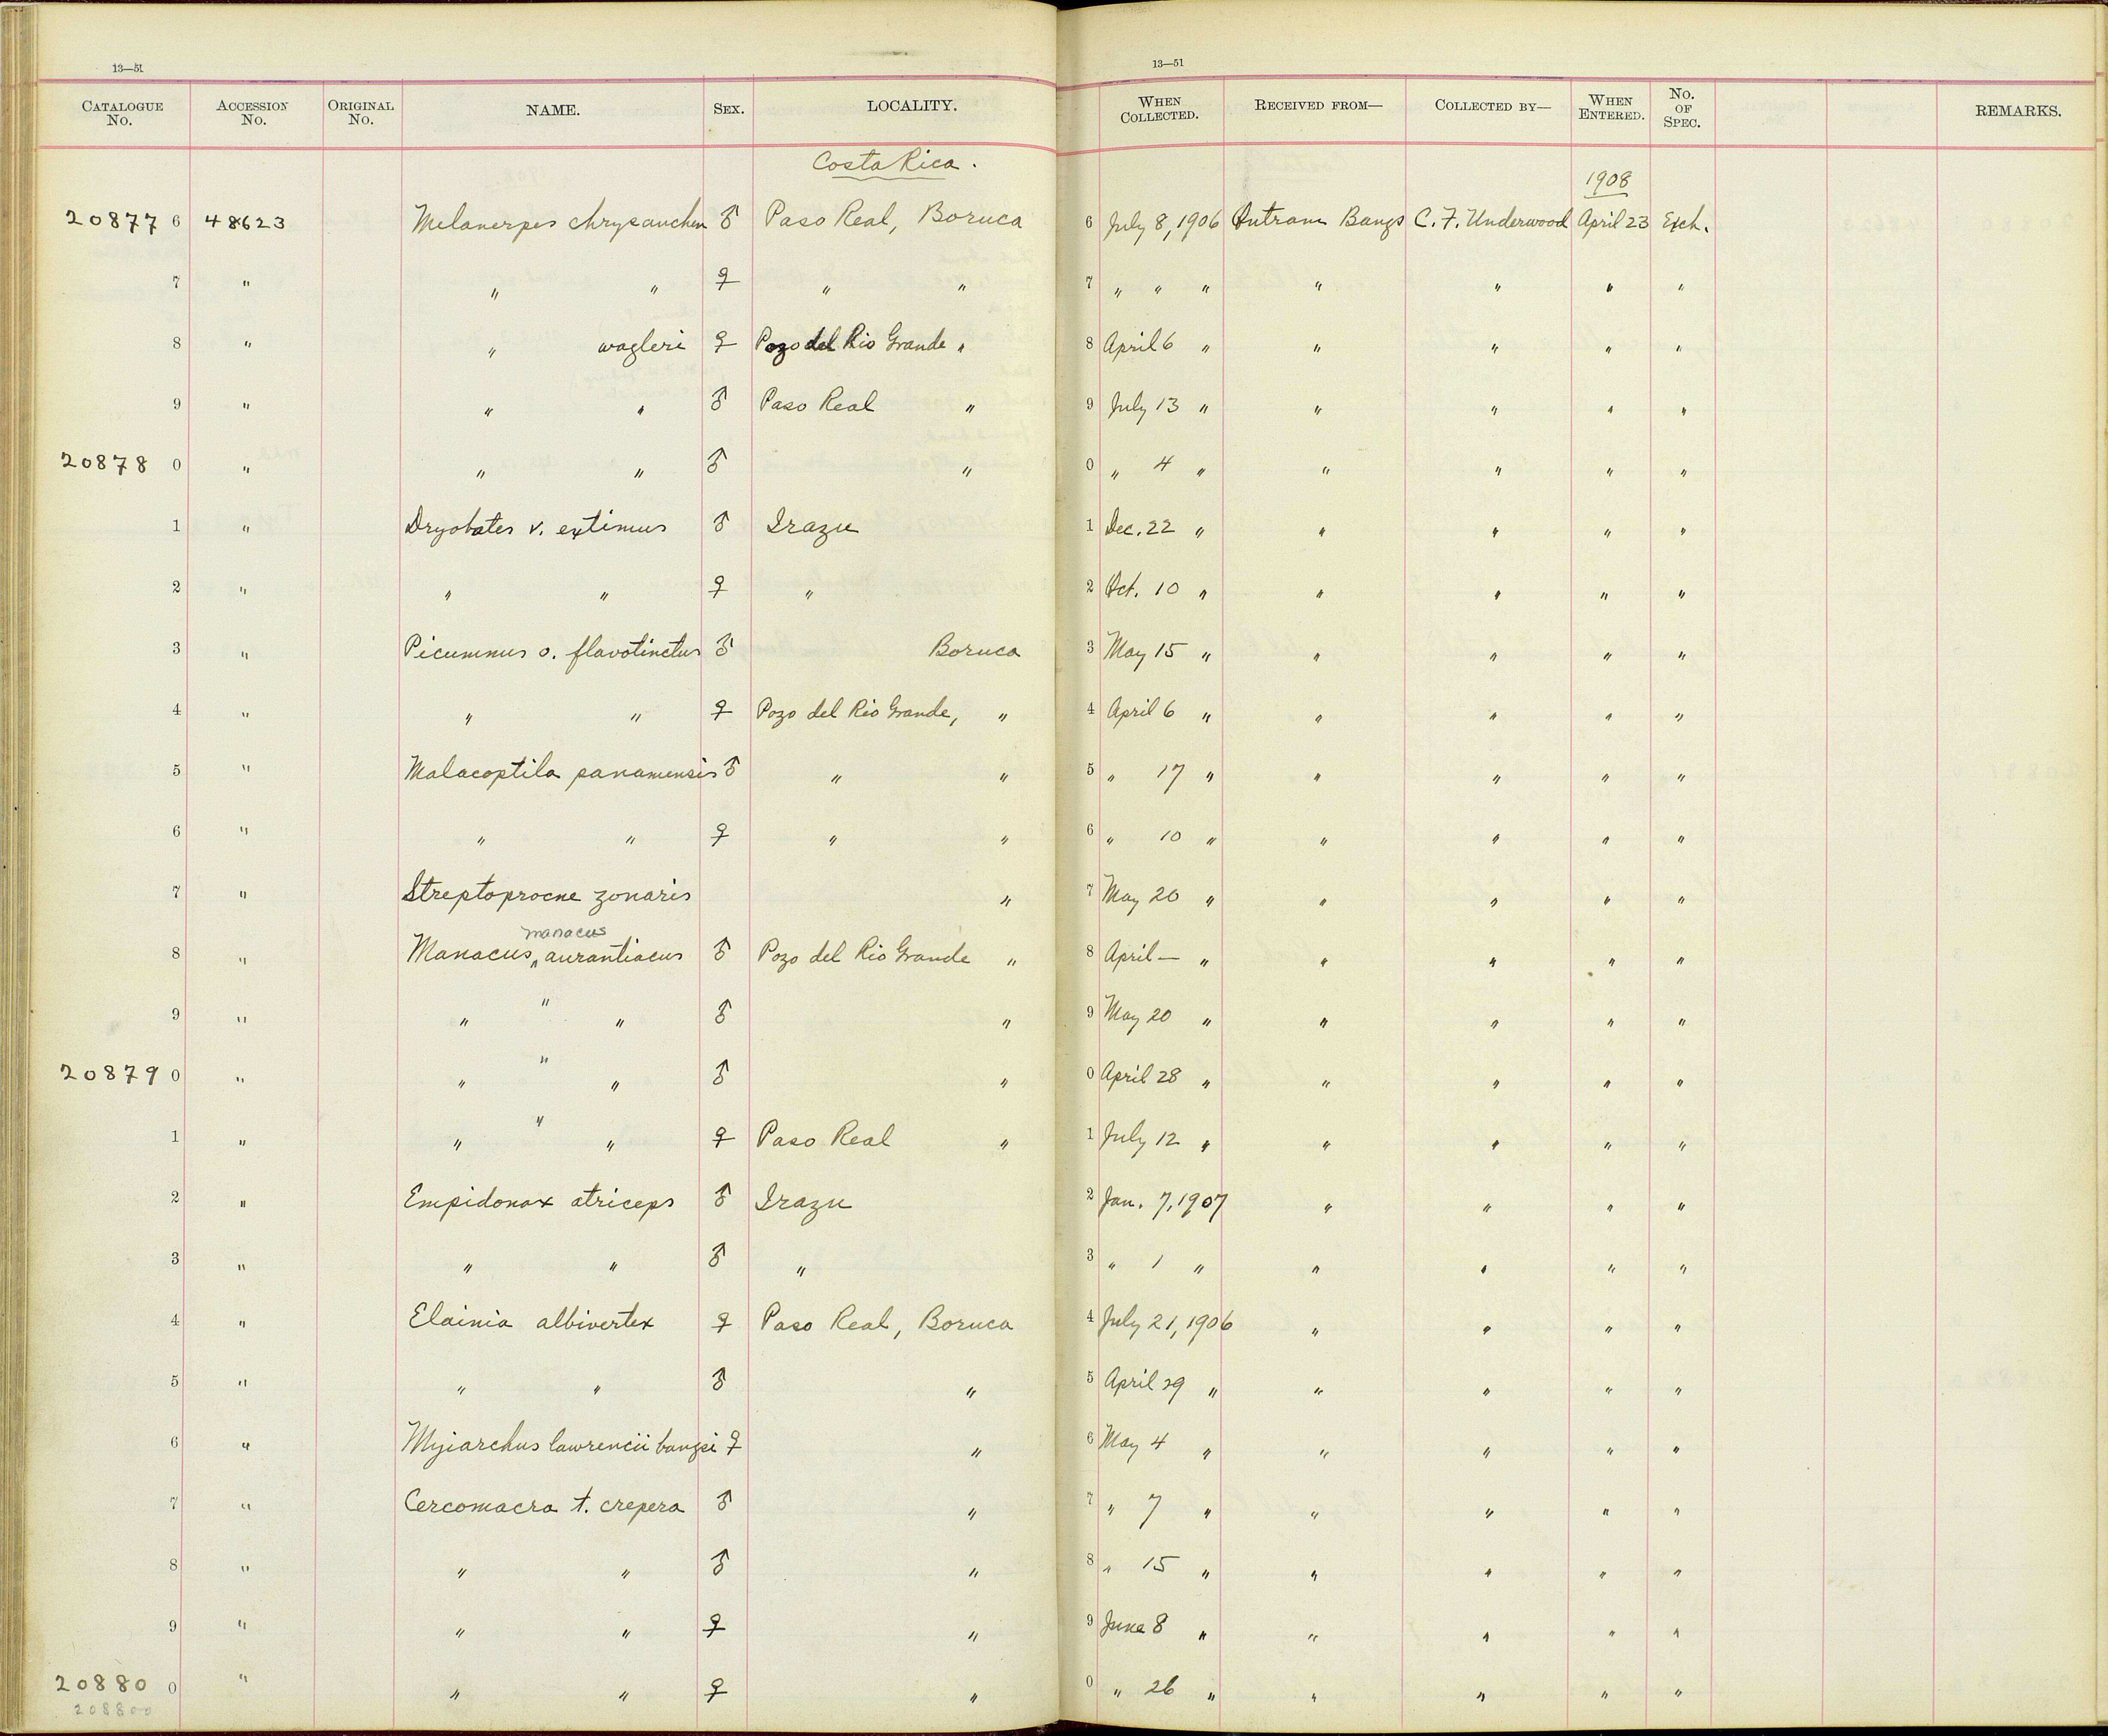 13—51 13—51
CATALOGUE No. ACCESSION No. ORIGINAL No. NAME. SEX. LOCALITY. WHEN COLLECTED. RECEIVED FROM— COLLECTED BY— WHEN ENTERED. No. OF SPEC. REMARKS.
Costa Rica.
1908
20877 6 48623 Melanerpes chrysauchen ♂ Paso Real, Boruca 6 July 8, 1906 Outram Bangs C. F. Underwood April 23 Exch.
7 " " " ♀ " " 7 " " " " " " "
8 " " wagleri ♀ Pozo del Rio Grande " 8 April 6 " " " " "
9 " " " ♂ Paso Real " 9 July 13 " " " " "
20878 0 " " " ♂ " 0 " 4 " " " " "
1 " Dryobates v. extimus ♂ Irazu 1 Dec. 22 " " " " "
2 " " " ♀ " 2 Oct. 10 " " " " "
3 " Picumnus o. flavotinctus ♂ Boruca 3 May 15 " " " " "
4 " " " ♀ Pozo del Rio Grande, " 4 April 6 " " " " "
5 " Malacoptila panamensis ♂ " " 5 " 17 " " " " "
6 " " " ♀ " " 6 " 10 " " " " "
7 " Streptoprocne zonaris " 7 May 20 " " " " "
manacus
8 " Manacus ‸ aurantiacus ♂ Pozo del Rio Grande " 8 April — " " " " "
9 " " " " ♂ " 9 May 20 " " " " "
20879 0 " " " " ♂ " 0 April 28 " " " " "
1 " " " " ♀ Paso Real " 1 July 12 " " " " "
2 " Empidonax atriceps ♂ Irazu 2 Jan. 7, 1907 " " " "
3 " " " ♂ " 3 " 1 " " " " "
4 " Elainia albivertex ♀ Paso Real, Boruca 4 July 21, 1906 " " " "
5 " " " ♂ " 5 April 29 " " " " "
6 " Myiarchus lawrencii bangsi ♀ " 6 May 4 " " " " "
7 " Cercomacra t. crepera ♂ " 7 " 7 " " " " "
8 " " " ♂ " 8 " 15 " " " " "
9 " " " ♀ " 9 June 8 " " " " "
20880 0 " " " ♀ " 0 " 26 " " " " "
208800